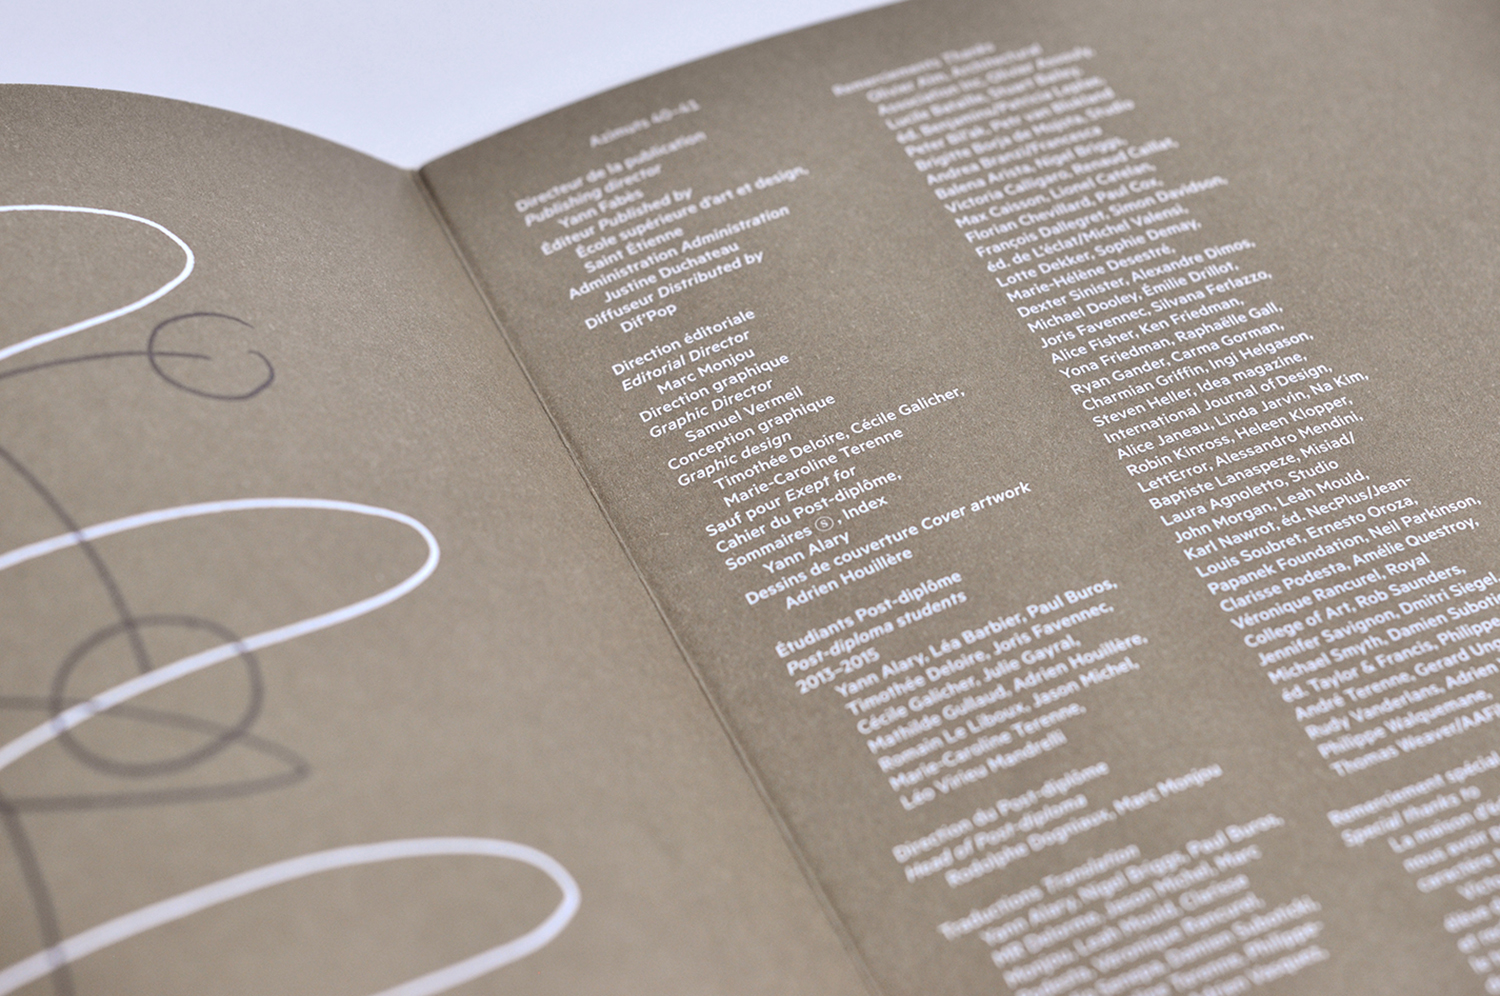 Azimuts 40–41
Directeur de la publication
Publishing director
Yann Fabès
Éditeur Published by
École supérieure d'art et design,
Saint Étienne
Administration Administration
Justine Duchateau
Diffuseur Distributed by
Dif'Pop
Direction éditoriale
Editorial Director
Marc Monjou
Direction graphique
Graphic Director
Samuel Vermeil
Conception graphique
Graphic design
Timothée Deloire, Cécile Galicher,
Marie-Caroline Terenne
Sauf pour Exept for
Cahier du Post-diplôme,
Sommaires Ⓢ, Index
Yann Alary
Dessins de couverture Cover artwork
Adrien Houillère
Étudiants Post-diplôme
Post-diploma students
2013–2015
Yann Alary, Léa Barbier, Paul Buros,
Timothée Deloire, Joris Favennec,
Cécile Galicher, Julie Gayral,
Mathilde Gullaud, Adrien Houillère,
Romain Le Liboux, Jason Michel,
Marie-Caroline Terenne,
Léo Virieu Mandrelli
Direction du Post-diplôme
Head of Post-diploma
Rodolphe Dogniaux, Marc Monjou
Traductions Translation
Yann Alary, Nigel Briggs, Paul Buros,
Jason Michel, Marc
Leah Mould, Clarisse
Véronique Rancurel,
Remerciements Thanks
Olivier Architectural
Association Inc, Olivier
Lucile Bataille, Stuart Bailey,
éd. Benjamin/Patrice
Peter Bil'ak, Petr van Blokland
Brigitte Borja de Mozota, Studio
Andrea Branzi/Francesca
Balena Arista, Nigel Briggs,
Victoria Calligaro, Renaud Caillat,
Max Caisson, Lionel Catelan,
Florian Chevillard, Paul Cox,
François Dallegret, Simon Davidson,
éd. de L'éclat/Michel Valensi,
Lotte Dekker, Sophie Demay,
Marie-Hélène Desestré,
Dexter Sinister, Alexandre Dimos,
Michael Dooley, Émilie Drillot,
Joris Favennec, Silvana Ferlazzo,
Alice Fisher, Ken Friedman,
Yona Friedman, Raphaëlle Gall,
Ryan Gander, Carma Gorman,
Charmian Griffin, Ingi Helgason,
Steven Heller, Idea magazine,
International Journal of Design,
Alice Janeau, Linda Jarvin, Na Kim,
Robin Kinross, Heleen Klopper,
LettError, Alessandro Mendini,
Baptiste Lanaspeze, Misiad/
Laura Agnoletto, Studio
John Morgan, Leah Mould,
Karl Nawrot, éd. NecPlus/Jean-
Louis Soubret, Ernesto Oroza,
Papanek Foundation, Neil Parkinson,
Clarisse Podesta, Amélie Questroy,
Véronique Rancurel, Royal
College of Art, Rob Saunders,
Jennifer Savignon, Dmitri Siegel,
Michael Smyth, Damien
éd. Taylor & Francis, Philippe
André Terenne, Gerard
Rudy Vanderlans, Adrien
Philippe Walquemane,
Thomas Weaver/AA
Remerciement spécial
Special thanks to
La maison
nous